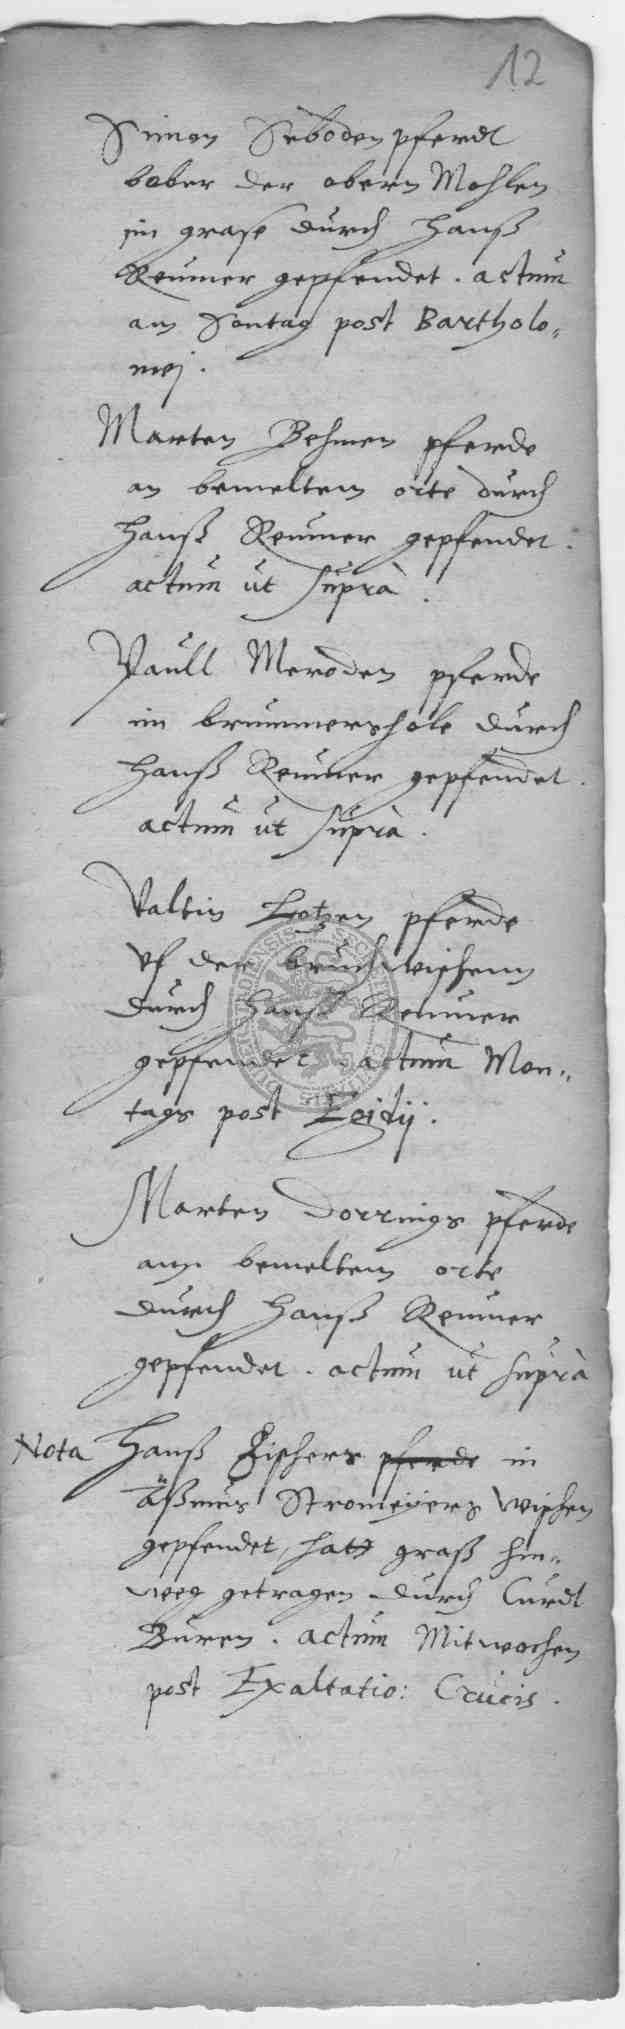 12
Simon Seboden pferdt
bober der obern Mohlen
im grase durch Hanß
Reumer gepfendet. actum
am Sontag post Bartholo„
mej.
Marten Behmen pferde
an bemeltem orte durch
Hanß Reumer gepfendet.
actum ut suprà.
Paull Meroden pferde
im brummershole durch
Hanß Reumer gepfendet.
actum ut suprà.
Valtin Lotzen pferde
vf der bruchwischenn
durch Hanß Reumer
gepfendet. actum Mon„
tags post Egidij.
Marten Dorrings pferde
ann bemeltem orte
durch Hanß Reumer
gepfendet. actum ut suprà
Nota Hanß Fischers pferde in
Aßmus Stromeÿers wischen
gepfendet, hatt graß hin„
weg getragen durch Curdt
Buren. actum Mitwochen
post Exaltatio: Crucis.